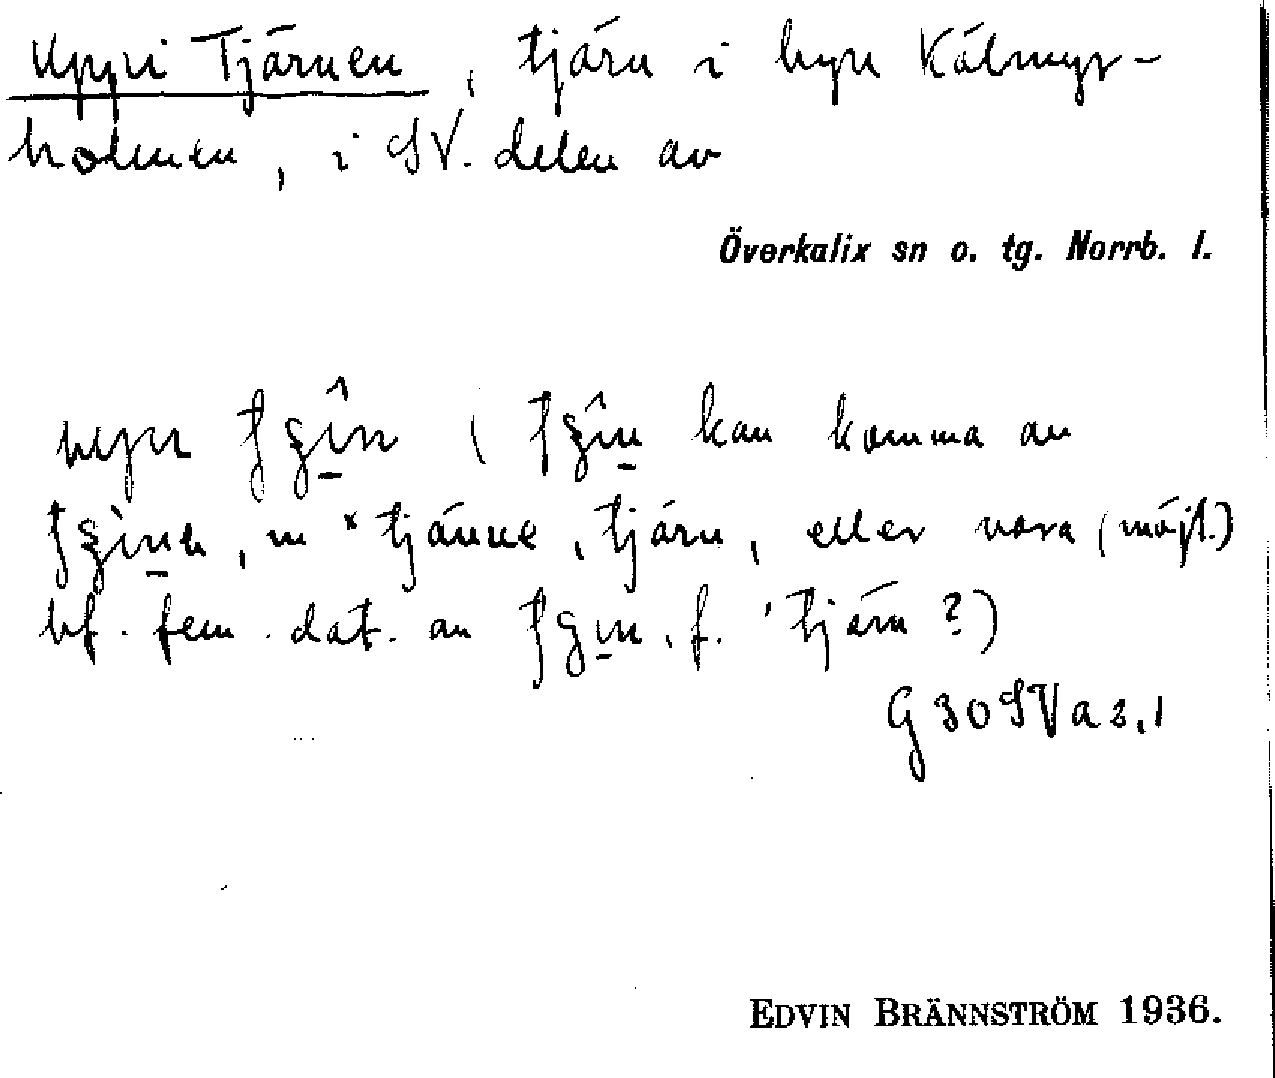 Uppi Tjärnen, tjärn i byn Kälmyr-
holmen, i SV. delen av
Överkalix sn o. tg. Norrb. l.
kan komma av
, m *tjänne, tjärn, eller vara (möjl.)
bf. fem. dat. av , f. 'tjärn?)
G 30 SV a 3,1
EDVIN BRÄNNSTRÖM 1936.